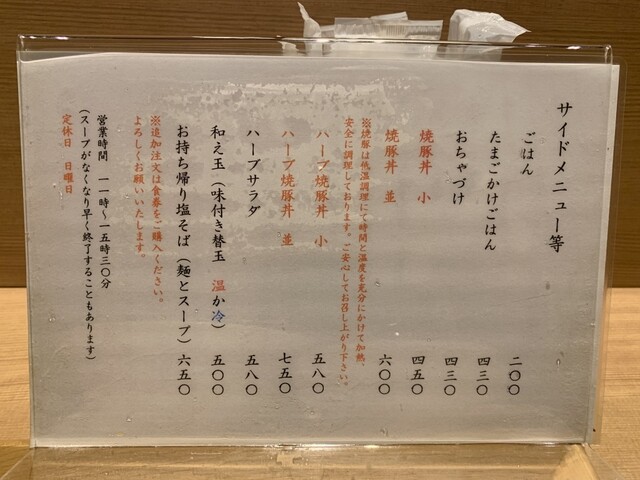 サイドメニュー等
ごはん 二〇〇
たまごかけごはん 四三〇
おちゃづけ 四三〇
焼豚丼 小 四五〇
焼豚丼 並 六〇〇
※焼豚は低温調理にて時間と温度を充分にかけて加熱、
安全に調理しております。ご安心してお召し上がり下さい。
ハーブ焼豚丼 小 五八〇
ハーブ焼豚丼 並 七五〇
ハーブサラダ 五八〇
和え玉（味付き替玉 温か冷） 五〇〇
お持ち帰り塩そば（麺とスープ） 六五〇
※追加注文は食券をご購入ください。
よろしくお願いいたします。
営業時間 一一時～一五時三〇分
（スープがなくなり早く終了することもあります）
定休日 日曜日